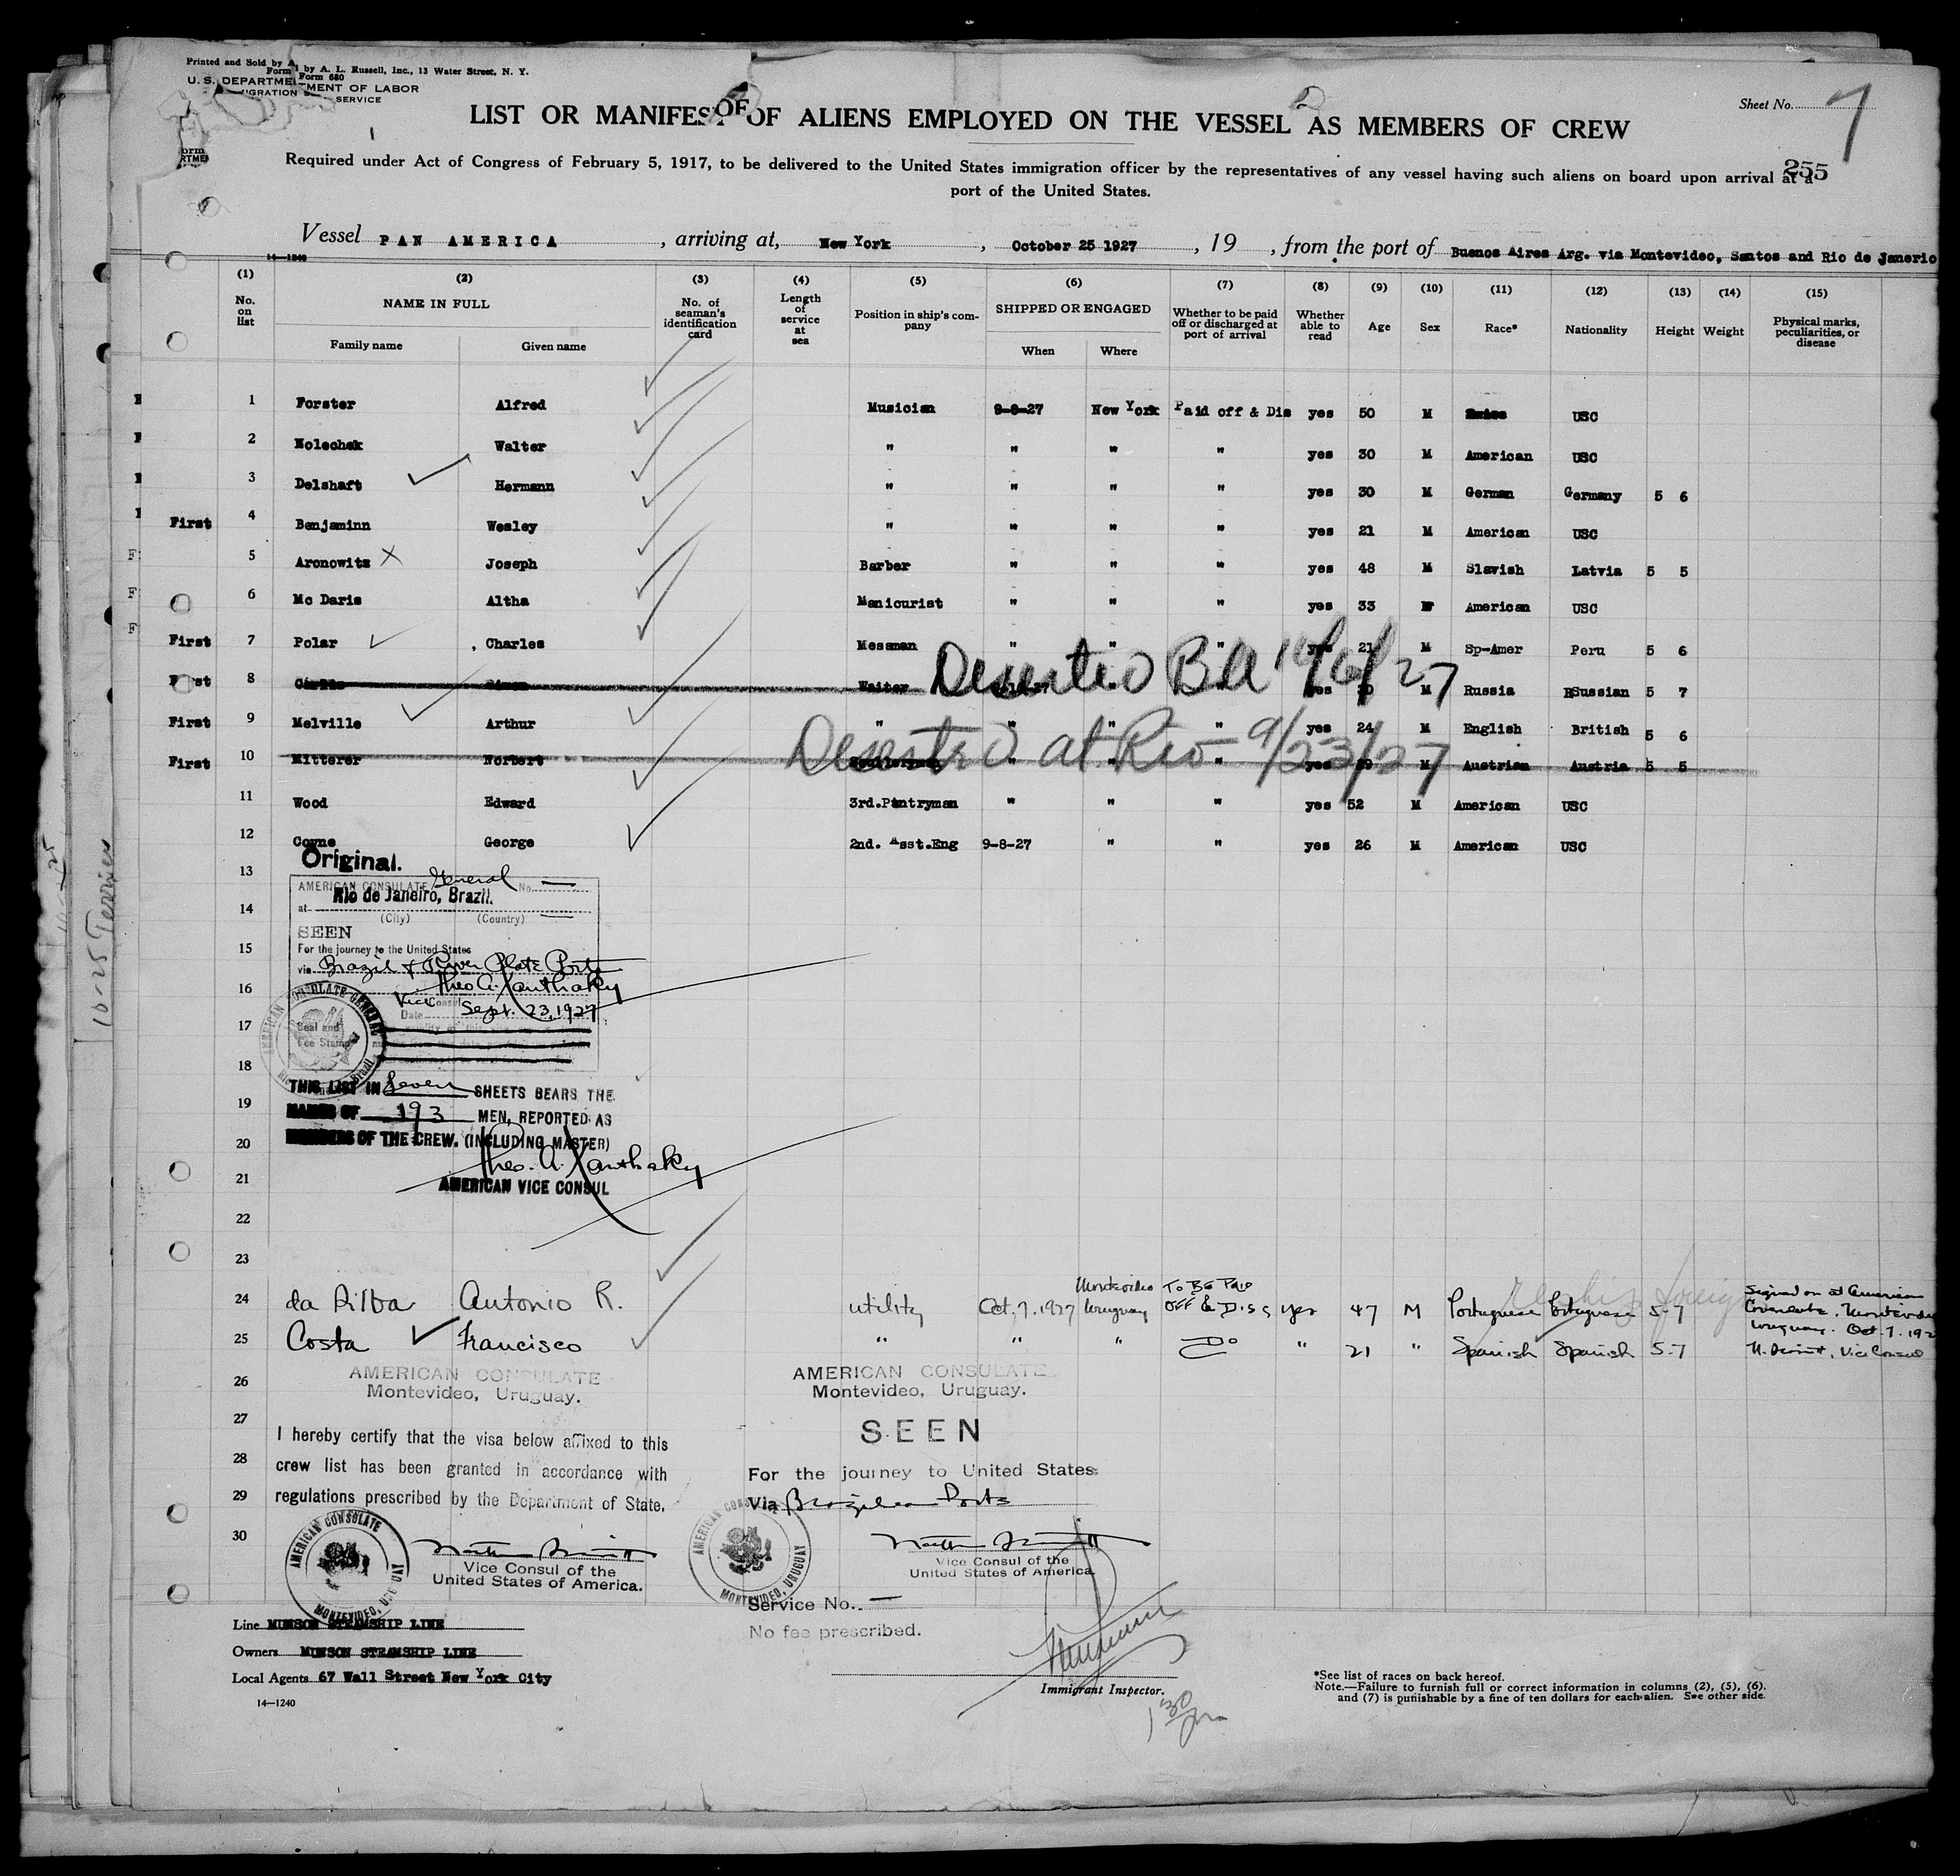 Printed and Sold by A. L. Russell, Inc., 13 Water Street, N. Y.
Form 680
U. S. DEPARTMENT OF LABOR
IMMIGRATION SERVICE
Sheet No. 7
LIST OR MANIFEST OF ALIENS EMPLOYED ON THE VESSEL AS MEMBERS OF CREW
255
Required under Act of Congress of February 5, 1917, to be delivered to the United States immigration officer by the representatives of any vessel having such aliens on board upon arrival at a
port of the United States.
Vessel PAN AMERICA, arriving at, New York, October 25 1927, 19 , from the port of Buenos Aires Arg. via Montevideo, Santos and Rio de Janerio
14-1240
(1) (2) (3) (4) (5) (6) (7) (8) (9) (10) (11) (12) (13) (14) (15)
No. on list NAME IN FULL No. of seaman's identification card Length of service at sea Position in ship's company SHIPPED OR ENGAGED Whether to be paid off or discharged at port of arrival Whether able to read Age Sex Race* Nationality Height Weight Physical marks, peculiarities, or disease
Family name Given name When Where
1 Forster Alfred Musician 9-8-27 New York Paid off & Dis yes 50 M USC
2 Holechek Walter " " " " yes 30 M American USC
3 Delshaft Hermann " " " " yes 30 M German Germany 5 6
First 4 Benjaminn Wesley " " " " yes 21 M American USC
5 Aronowitz X Joseph Barber " " " yes 48 M Slavish Latvia 5 5
6 Mc Daris Altha Manicurist " " " yes 33 F American USC
First 7 Polar , Charles Messman " " " yes 21 M Sp-Amer Peru 5 6
First 8 Waiter yes M Russia RSussian 5 7
Deserted BA 10/6/27
First 9 Melville Arthur " " " " yes 24 M English British 5 6
Deserted at Rio 9/23/27
First 10 Mitterer Norbert " " " yes M Austrian Austria 5 5
11 Wood Edward 3rd.Pantryman " " " yes 52 M American USC
12 Coyne George 2nd. Asst.Eng 9-8-27 " " yes 26 M American USC
13
Original.
AMERICAN CONSULATE General No. —
at Rio de Janeiro, Brazil.
14
(City) (Country)
SEEN
15
For the journey to the United States
via Brazil & River Plate Ports
16
Theo. A. Xanthaky
Vice Consul
Date Sept. 23, 1927
17
AMERICAN CONSULATE GENERAL
Seal and
Fee Stamp
18
THIS LIST IN Seven SHEETS BEARS THE
19
NAMES OF 193 MEN, REPORTED AS
20
MEMBERS OF THE CREW. (INCLUDING MASTER)
Theo. A. Xanthaky
21
AMERICAN VICE CONSUL
22
23
24 da Silva Antonio R. utility Oct. 7. 1927 Montevideo Uruguay To Be Paid Off & Diss yes 47 M Portuguese Portuguese 5-7 Signed on at American Consulate, Montevideo Uruguay. Oct. 7. 192
25 Costa Francisco " " " Do " 21 " Spanish Spanish 5-7 Vice Consul
26
AMERICAN CONSULATE
Montevideo, Uruguay.
AMERICAN CONSULATE
Montevideo, Uruguay.
27
I hereby certify that the visa below affixed to this
28
crew list has been granted in accordance with
29
regulations prescribed by the Department of State.
30
SEEN
For the journey to United States
Via Brazilian Ports
AMERICAN CONSULATE
MONTEVIDEO, URUGUAY
Vice Consul of the
United States of America.
AMERICAN CONSULATE
MONTEVIDEO, URUGUAY
Vice Consul of the
United States of America.
Service No. —
No fee prescribed.
Line MUNSON STEAMSHIP LINE
Owners MUNSON STEAMSHIP LINE
Local Agents 67 Wall Street New York City
14—1240
Immigrant Inspector.
*See list of races on back hereof.
Note.—Failure to furnish full or correct information in columns (2), (5), (6),
and (7) is punishable by a fine of ten dollars for each alien. See other side.